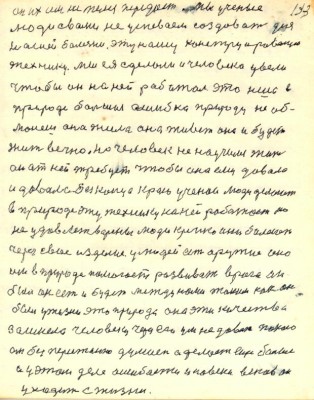 он их им на тему передает. Мы ученые 123
люди сваи не успеваем создават для
нашей болезни. эту нашу конструированую
технику. мы ея сделали и человека увели
чтобы он на ней работал это нешего
природе большая ошибка природу не об-
манеш она жила она живет она и будет
жит вечно. но человек не научился жит
он от ней требует чтобы она ему давала
и давала. Без конца края ученой люди делают
в природе эту технику на ней работают но
не удовлетворены люди крепко они болеют
через свое изделие у людей ест оружие оно
им в природе помогает развиват врага он
был он ест и будет между нами таким как он
был у жизни это природа она эти качества
заменила человеку чтобы ему не давал такого
он без перестанно думает а делает еще больше
а у этом деле ошибается и человек веков он
уходит с жизни.